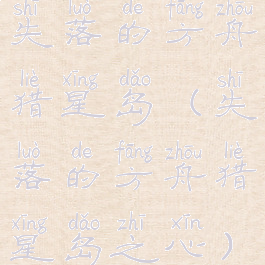 shī luò de fāng zhōu
失落的方舟
liè xīng dǎo shī
猎星岛（失
luò de fāng zhōu liè
落的方舟猎
xīng dǎo zhī xīn
星岛之心）